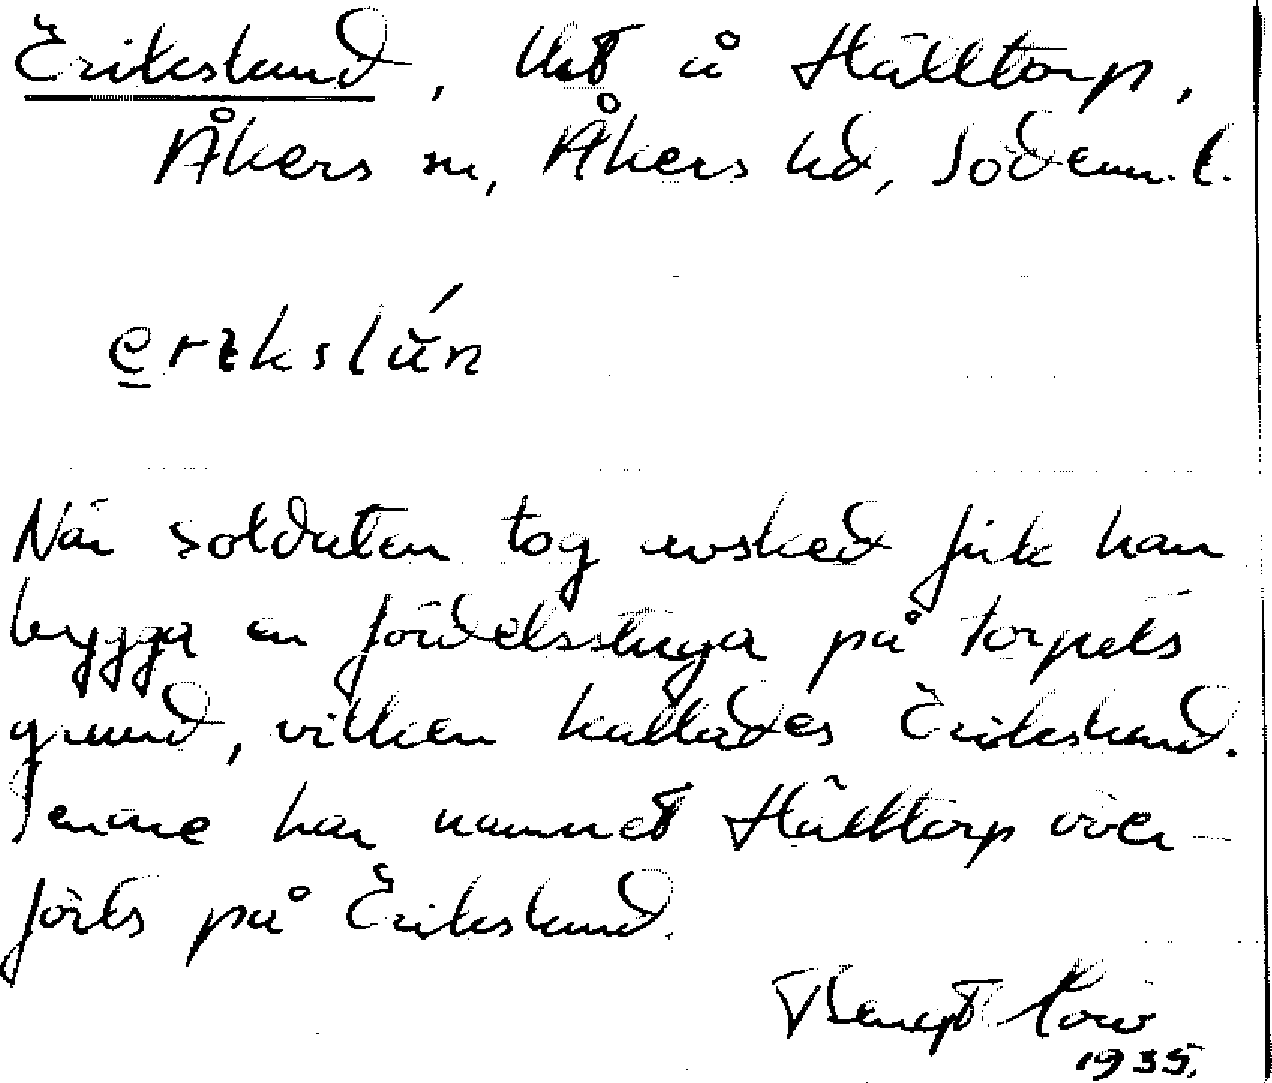 Erikslund, lht å Hälltorp,
Åkers sn, Åkers hd, Söderm. l.
erikslún
När soldaten tog avsked fick han
bygga en fördelsstuga på torpets
grund, vilken kallades Erikslund.
Senare har namnet Hälltorp över-
förts på Erikslund.
Bengt
1935.